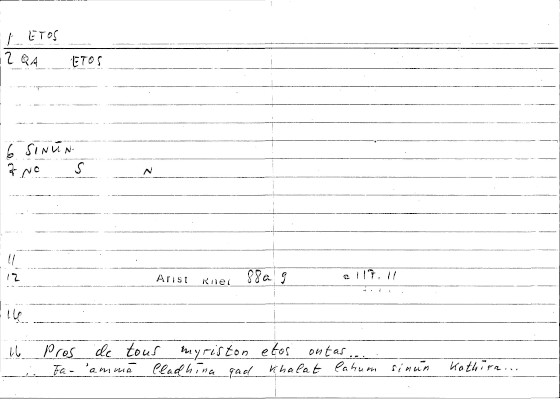 1 ETOS
2 QA ETOS
6 SINŪN
7 NC S N
11
12 Arist Rhet 88a 9 = 117.11
14
16 Pros de tous myriston etos ontas...
Fa-'ammā lladhīna qad khalat lahum sinūn kathīra...